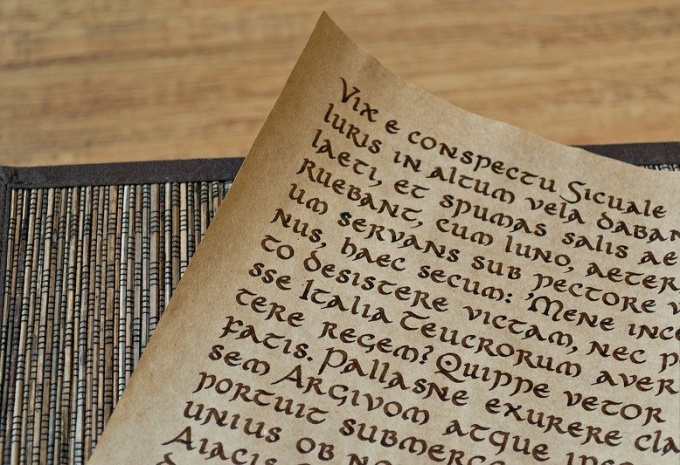 Vix e conspectu Sicuale
luris in altum vela daban
laeti, et spumas salis ae
ruebant, cum Iuno, aeter
um servans sub pectore v
nus, haec secum: 'Mene ince
to desistere victam, nec p
sse Italia Teucrorum aver
tere regem? Quippe vetor
fatis. Pallasne exurere cla
sem Argivom atque
portuit submerg
unius ob
Aiacis